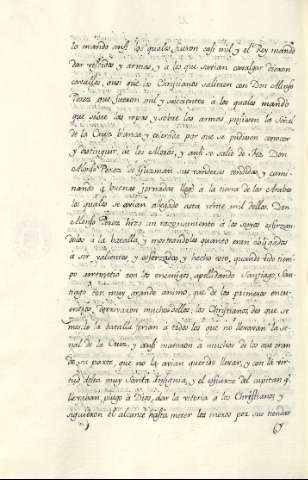 lo mando ansi los quales fueron casi mil y el Rey mandò
dar vestidos y armas, y a los que savian cavalgar dieron
cavallos, ansi que los Christianos salieron con Don Alonso
Perez que fueron mil y seiscientos a los quales mandò
que sobre las ropas y sobre las armas pusiesen la Señal
de la Cruz blanca y colorada por que se pudiesen conocer
y distinguir de los Moros, y ansi se saliò de Fez Don
Alonso Perez de Guzman sus vanderas tendidas, y cami-
nando a buenas jornadas llegò a la tierra de los Arabes
los quales se avian allegado asta veinte mil dellos. Don
Alonso Perez hizo un razonamiento a los suyos esforzan-
dolos a la batalla, y mostrandoles quanto eran obligados
a ser valientes y esforzados, y hecho esto, quando vido tiem-
po arremetio con los enemigos, apellidando Santiago, San-
tiago con muy grande animo, que de los primeros encuen-
tros, derrivaron muchos dellos; los Christianos, des que se
mesclò la batalla ferian a todos los que no llevavan la se-
ñal de la Cruz, y ansi mataron a muchos de los que eran
de su parte, que no la avian querido llevar, y con la vir-
tud desta muy Santa Insignia, y el esfuerzo del capitan q.
llevaban, plugo a Dios, dar la vitoria a los Christianos y
siguieron el alcance hasta meter los moros por sus tiendas